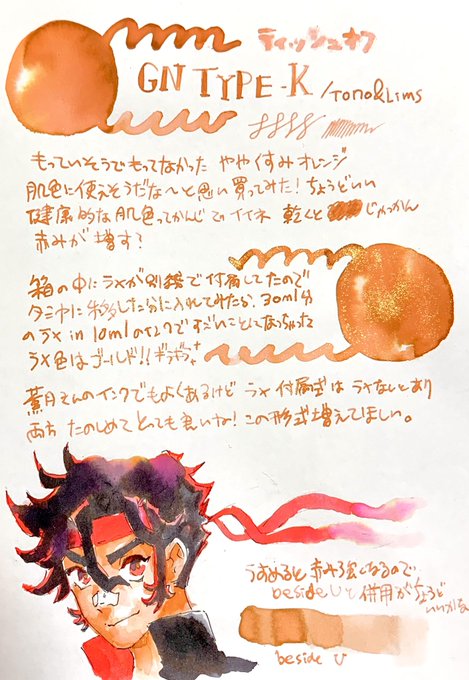 ティッシュオフ
GN TYPE-K /Tono&Lims
もっていそうでもってなかった ややくすみオレンジ
肌色に使えそうだな〜と思い買ってみた！ちょうどいい
健康的な肌色ってかんじでイイネ 乾くと じゃっかん
赤みが増す？
箱の中にラメが別録で付属してたので
タミヤに移した分に入れてみたら、30ml分
のラメ in 10mlのインクですごいことになっちゃった
ラメ色はゴールド!! ギラギラ
葉月さんのインクでもよくあるけど ラメ付属式は ラメないとあり
両方 たのしめて とっても良いな！この形式増えてほしい。
うすめると 赤み強くなるので
beside Uと併用がちょうど
いいかな
beside U